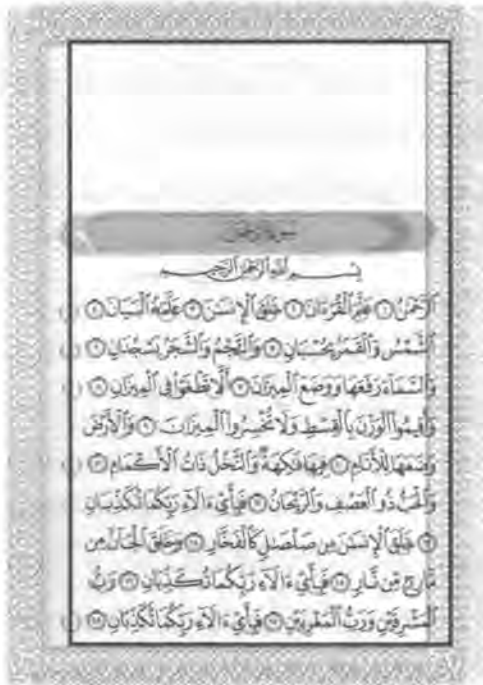 سورة الرحمن
بسم الله الرحمن الرحيم
ٱلرَّحْمَٰنُ ۝١ عَلَّمَ ٱلْقُرْءَانَ ۝٢ خَلَقَ ٱلْإِنسَٰنَ ۝٣ عَلَّمَهُ ٱلْبَيَانَ ۝٤
ٱلشَّمْسُ وَٱلْقَمَرُ بِحُسْبَانٍ ۝٥ وَٱلنَّجْمُ وَٱلشَّجَرُ يَسْجُدَانِ ۝٦
وَٱلسَّمَآءَ رَفَعَهَا وَوَضَعَ ٱلْمِيزَانَ ۝٧ أَلَّا تَطْغَوْا۟ فِى ٱلْمِيزَانِ ۝٨
وَأَقِيمُوا۟ ٱلْوَزْنَ بِٱلْقِسْطِ وَلَا تُخْسِرُوا۟ ٱلْمِيزَانَ ۝٩ وَٱلْأَرْضَ
وَضَعَهَا لِلْأَنَامِ ۝١٠ فِيهَا فَٰكِهَةٌ وَٱلنَّخْلُ ذَاتُ ٱلْأَكْمَامِ ۝١١
وَٱلْحَبُّ ذُو ٱلْعَصْفِ وَٱلرَّيْحَانُ ۝١٢ فَبِأَىِّ ءَالَآءِ رَبِّكُمَا تُكَذِّبَانِ
۝١٣ خَلَقَ ٱلْإِنسَٰنَ مِن صَلْصَٰلٍ كَٱلْفَخَّارِ ۝١٤ وَخَلَقَ ٱلْجَآنَّ مِن
مَّارِجٍ مِّن نَّارٍ ۝١٥ فَبِأَىِّ ءَالَآءِ رَبِّكُمَا تُكَذِّبَانِ ۝١٦ رَبُّ
ٱلْمَشْرِقَيْنِ وَرَبُّ ٱلْمَغْرِبَيْنِ ۝١٧ فَبِأَىِّ ءَالَآءِ رَبِّكُمَا تُكَذِّبَانِ ۝١٨